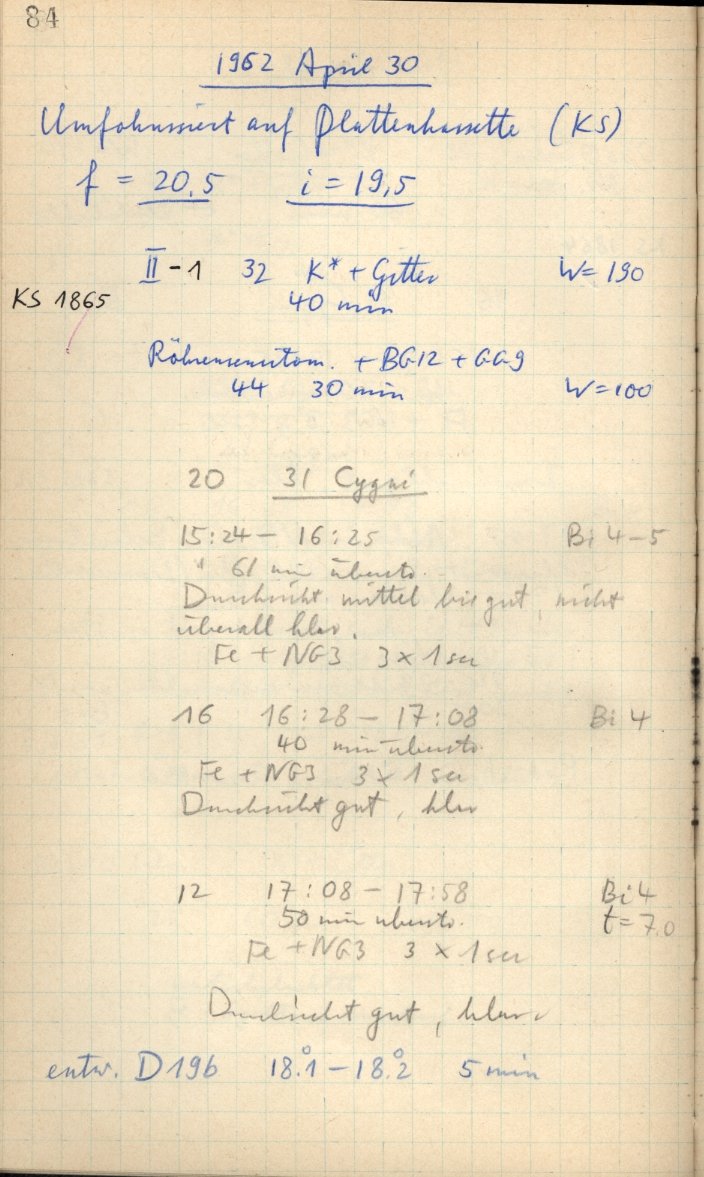 84
1962 April 30
Umfokussiert auf Plattenkassette (KS)
f = 20.5 i = 19,5
II - 1 32 K* + Gitter W = 190
KS 1865
40 min
Röhrensensitom. + BG12 + GG9
44 30 min W = 100
20 31 Cygni
15:24 – 16:25 Bi 4–5
61 min
Durchsicht mittel bis gut, nicht
überall klar.
Fe + NG3 3 × 1 sec
16 16:28 – 17:08 Bi 4
40 min
Fe + NG3 3 × 1 sec
Durchsicht gut, klar
12 17:08 – 17:58 Bi 4
50 min t = 7.0
Fe + NG3 3 × 1 sec
Durchsicht gut, klar.
entw. D19b 18.°1 – 18.°2 5 min